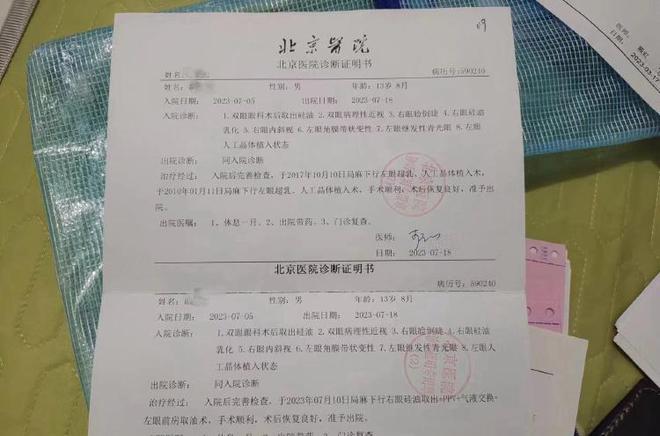 19
北京醫院
北京医院诊断证明书
姓名: 性别: 男 年龄: 13岁 8月 病历号: 590240
入院日期: 2023-07-05 出院日期: 2023-07-18
入院诊断: 1.双眼眼科术后取出硅油 2.双眼病理性近视 3.右眼睑倒睫 4.右眼硅油
乳化 5.右眼内斜视 6.左眼角膜带状变性 7.左眼继发性青光眼 8.左眼
人工晶体植入状态
出院诊断: 同入院诊断
治疗经过: 入院后完善检查, 于2017年10月10日局麻下行左眼超乳、人工晶体植入术,
于2018年01月11日局麻下行左眼超乳、人工晶体植入术, 手术顺利, 术后恢复良好, 准予出
院。
出院医嘱: 1、休息一月。2、出院带药。3、门诊复查。
医师:
日期: 2023-07-18
北京医院诊断证明书
病历号: 590240
姓名: 性别: 男 年龄: 13岁 8月
入院日期: 2023-07-05 出院日期: 2023-07-18
入院诊断: 1.双眼眼科术后取出硅油 2.双眼病理性近视 3.右眼睑倒睫 4.右眼硅油
乳化 5.右眼内斜视 6.左眼角膜带状变性 7.左眼继发性青光眼 8.左眼人
工晶体植入状态
出院诊断: 同入院诊断
治疗经过: 入院后完善检查, 于2023年07月10日局麻下行右眼硅油取出+PPV+气液交换+
左眼前房取油术, 手术顺利, 术后恢复良好, 准予出院。
医师:
日期: 2023-03-17